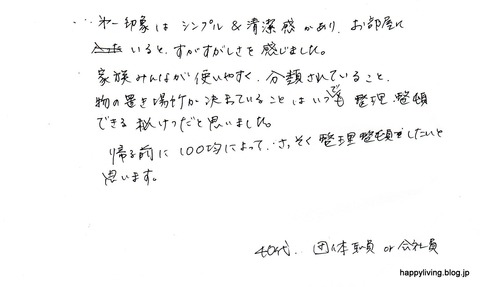 … 第一印象は シンプル & 清潔感があり、お部屋に
いると、すがすがしさを感じました。
家族みんなが使いやすく、分類されていること、
物の置き場所が決まっていることはいつでも 整理 整頓
できる秘けつだと思いました。
帰る前に 100均によって、さっそく整理整頓をしたいと
思います。
40代、団体職員 or 会社員
happyliving.blog.jp